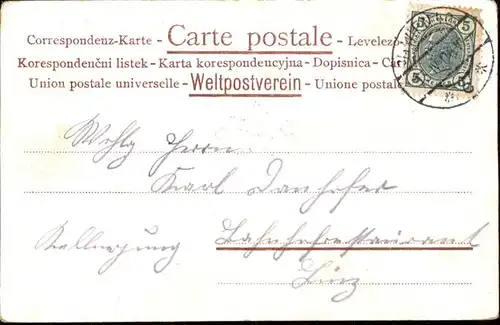 Correspondenz-Karte - Carte postale - Levelez
Korespondenční listek - Karta korespondencyjna - Dopisnica - Car
Union postale universelle - Weltpostverein - Unione postale
5 5
5
Wohlg Herrn
Karl
Kellnerjung Bahnhofrestaurant
Linz